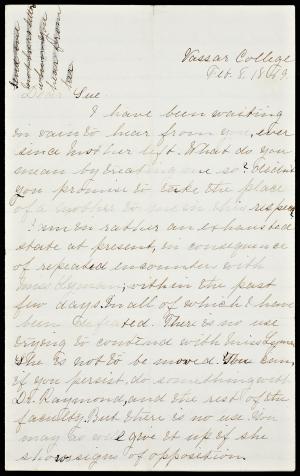 Send me
when you
hear from
her
Vassar College
Feb. 8, 1869.
Dear Sue
I have been waiting
in vain to hear from you, ever
since Mother left. What do you
mean by treating me so? Didn't
you promise to take the place
of a mother to me in this respect?
I am in rather an exhausted
state at present, in consequence
of repeated encounters with
Miss Lyman, within the past
few days. In all of which I have
been defeated. There is no use
trying to contend with Miss Lyman
She is not to be moved. You can,
if you persist, do something with
Dr. Raymond, and the rest of the
faculty. But there is no use. You
may as well give it up if she
shows signs of opposition.